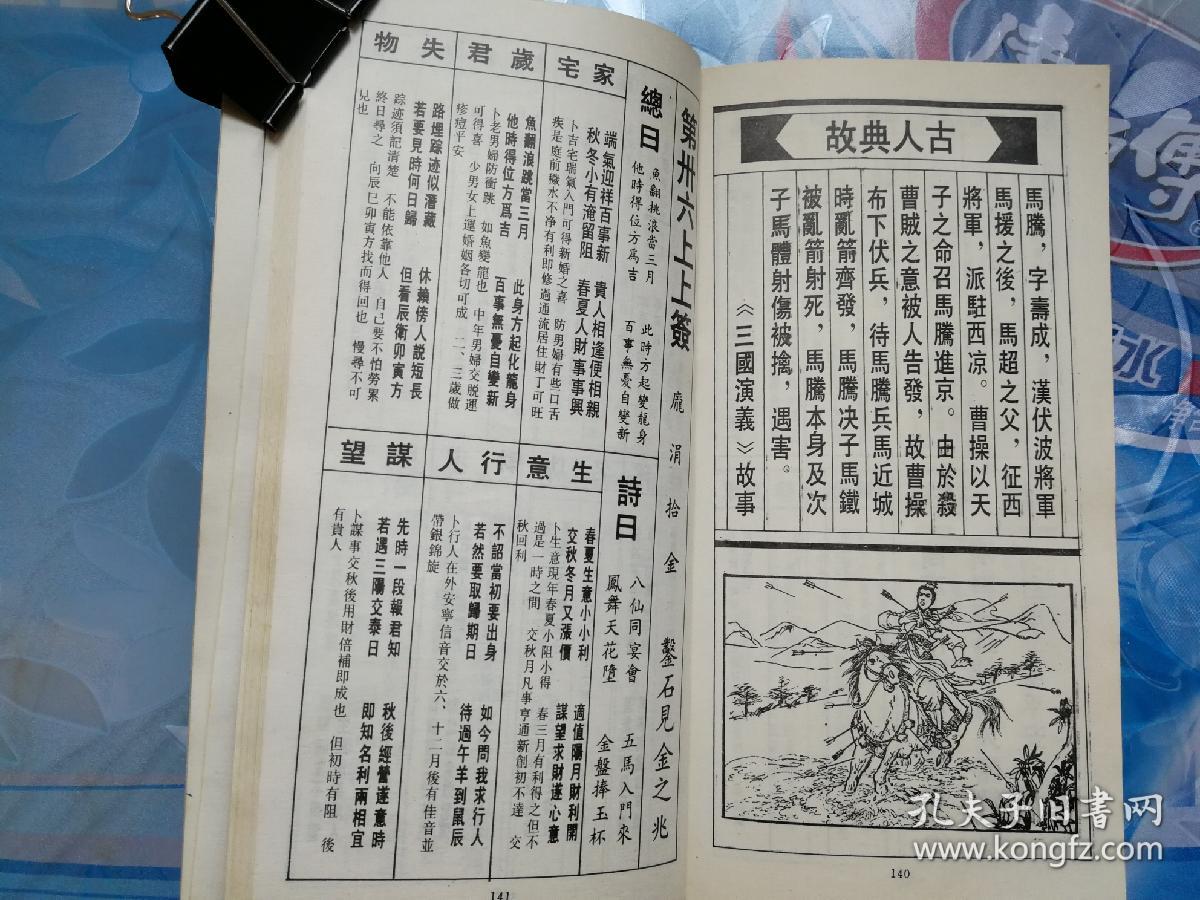 古人典故
馬騰，字壽成，漢伏波將軍
馬援之後，馬超之父，征西
將軍，派駐西凉。曹操以天
子之命召馬騰進京。由於殺
曹賊之意被人告發，故曹操
布下伏兵，待馬騰兵馬近城
時亂箭齊發，馬騰决子馬鐵
被亂箭射死，馬騰本身及次
子馬體射傷被擒，遇害。
《三國演義》故事
140
第卅六上上簽 龐涓拾金 鑿石見金之兆
總曰
魚翻桃浪當三月 此時方起變龍身
他時得位方爲吉 百事無憂自變新
詩曰
八仙同宴會 五馬入門來
鳳舞天花墮 金盤捧玉杯
家宅
端氣迎祥百事新 貴人相逢便相親
秋冬小有淹留阻 春夏人財事事興
卜吉宅瑞氣入門可得新婚之喜 防男婦有些口舌
疾是庭前穢水不净有利即修過通流居住財丁可旺
歲君
魚翻浪跳當三月 此身方起化龍身
他時得位方爲吉 百事無憂自變新
卜老男婦防衝跳 如魚變龍也 中年男婦交脱運
可得喜 少男女上運婚姻各切可成 二、三歲做
疹痘平安
失物
路埋踪迹似潛藏 休賴傍人説短長
若要見時何日歸 但看辰衛卯寅方
踪迹須記清楚 不能依靠他人 自己要不怕勞累
終日尋之 向辰巳卯寅方找而得回也 慢尋不可
見也
生意
春夏生意小小利 適值陽月財利開
交秋冬月又漲價 謀望求財遂心意
卜生意現年春夏小阻小得 春三月有利得之但不
過是一時之間 交秋月凡事亨通新創初不達 交
秋回利
行人
不詔當初要出身 如今問我求行人
若然要取歸期日 待過午羊到鼠辰
卜行人在外安寧信音交於六、十二月後有佳音並
帶銀錦旋
謀望
先時一段報君知 秋後經營遂意時
若遇三陽交泰日 即知名利兩相宜
卜謀事交秋後用財倍補即成也 但初時有阻 後
有貴人
141
孔夫子旧書网
www.kongfz.com
傳
水